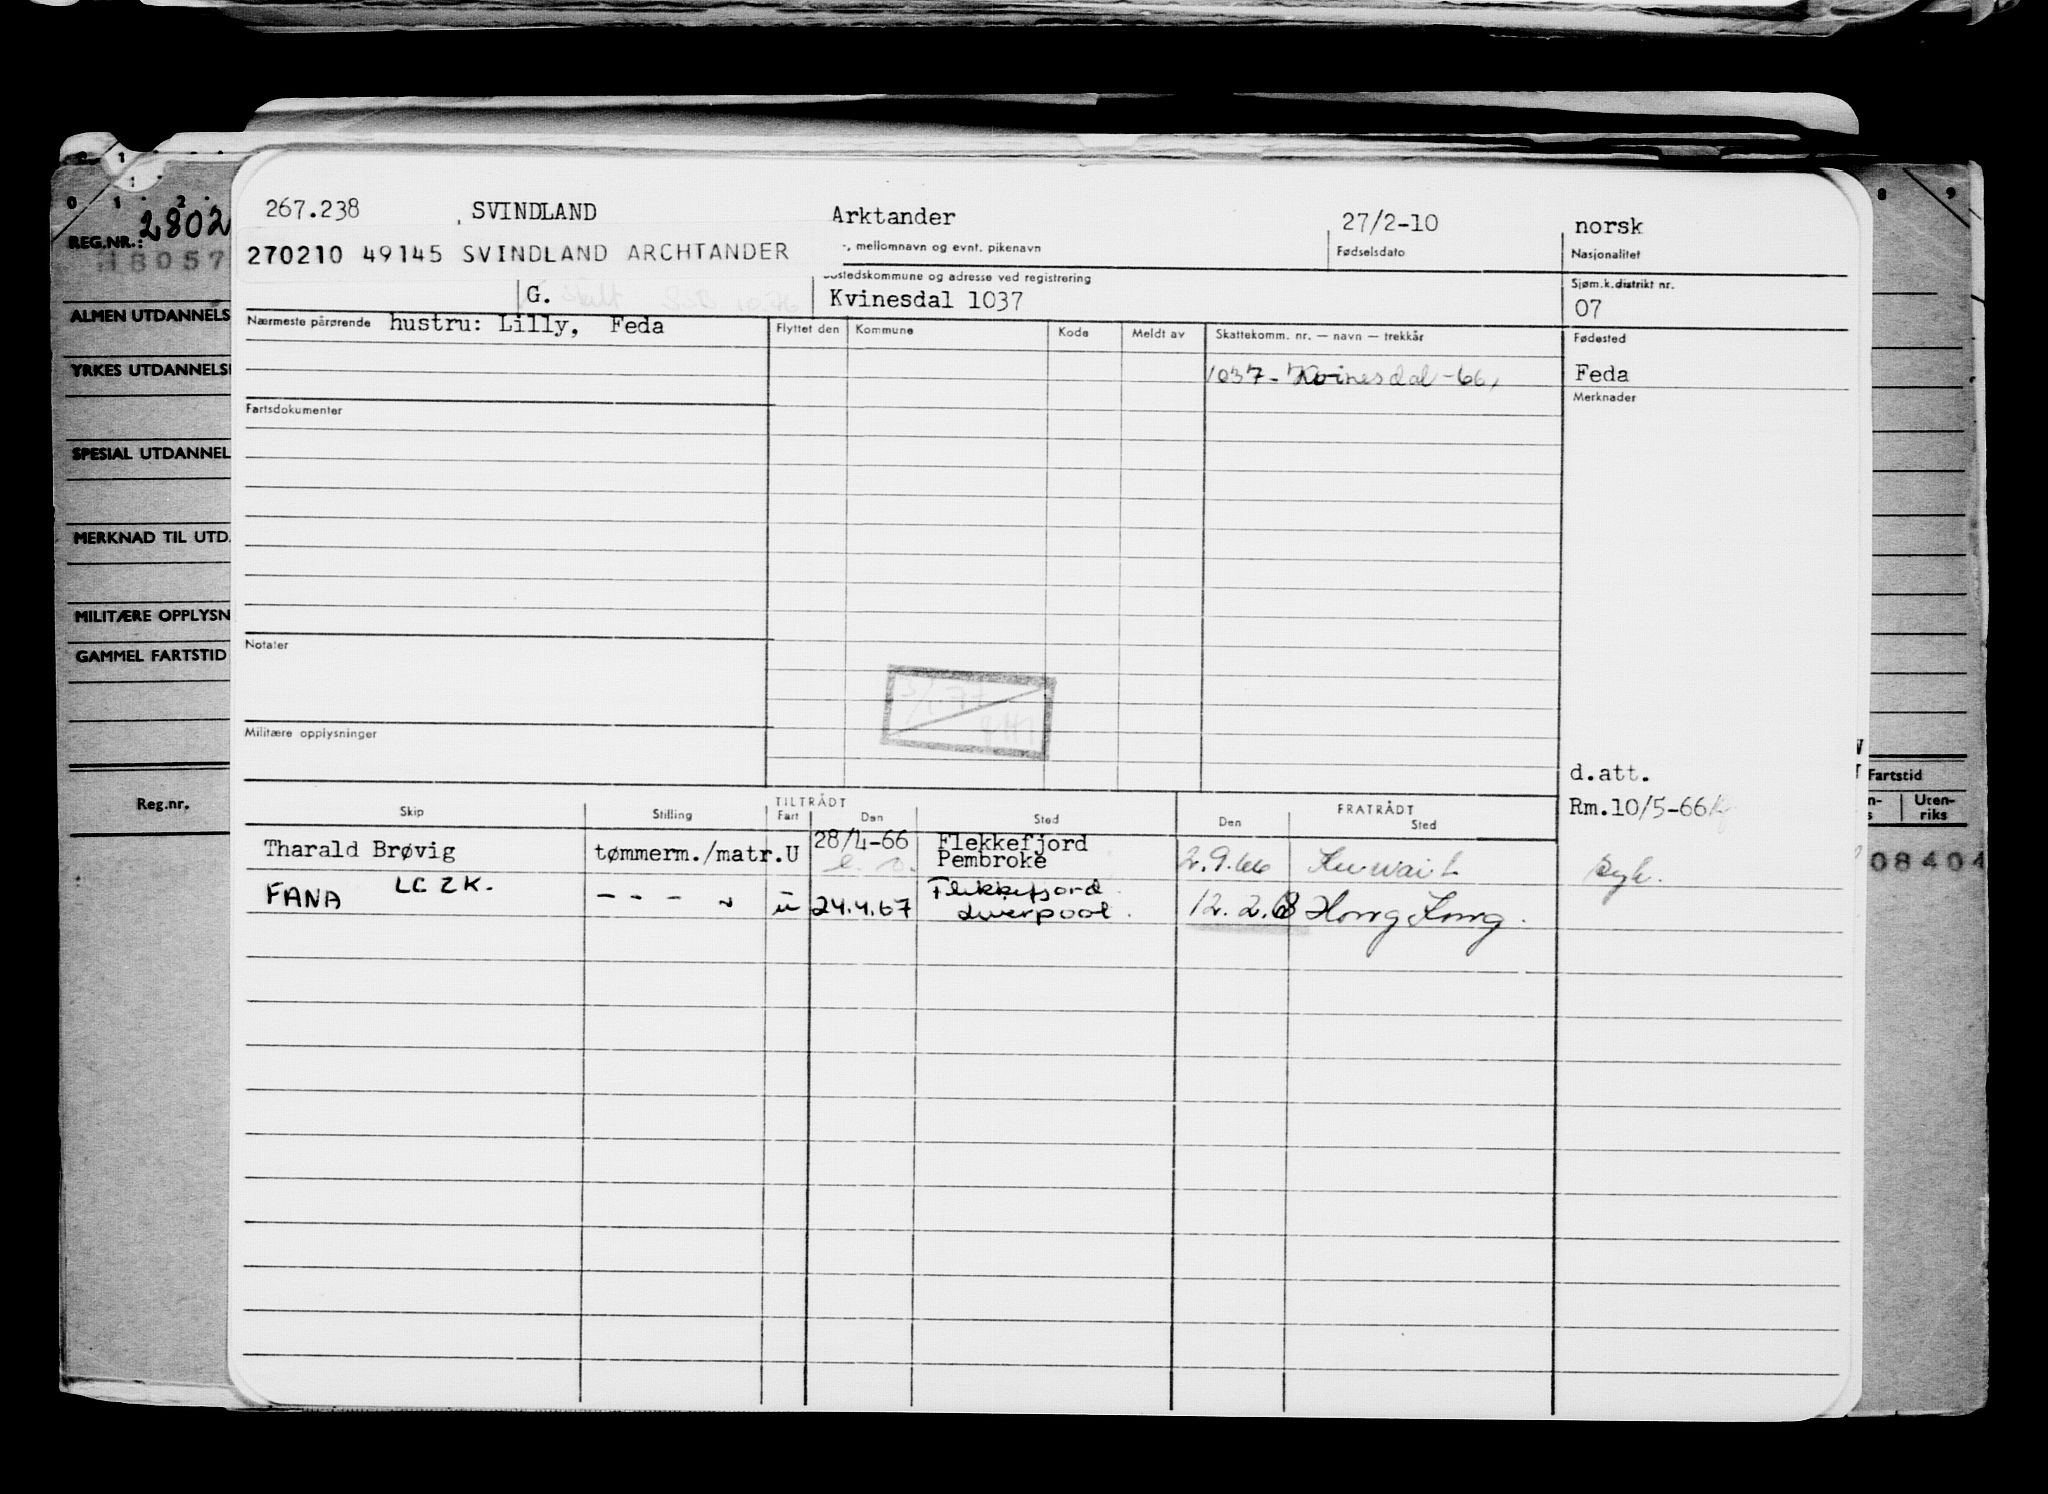 267.238 SVINDLAND Arktander 27/2-10 norsk
-, mellomnavn og evnt. pikenavn Fødselsdato Nasjonalitet
270210 49145 SVINDLAND ARCHTANDER
ostedskommune og adresse ved registrering Sjøm.k.distrikt nr.
G. Kvinesdal 1037 07
Nærmeste pårørende hustru: Lilly, Feda Flyttet den Kommune Kode Meldt av Skattekomm. nr. — navn — trekkår Fødested
1037 - Kvinesdal - 66, Feda
Fartsdokumenter Merknader
Notater
Militære opplysninger
d.att.
TILTRÅDT FRATRÅDT Rm.10/5-66
Skip Stilling Fart Den Sted Den Sted
Tharald Brøvig tømmerm./matr. U 28/4-66 Flekkefjord
Pembroke 2.9.66 Kuwait syk.
FANA LCZK. - - - ~ u 24.4.67 Flekkefjord
Liverpool. 12.2.68 Hong Kong.
0 1 2
REG.NR.: 2802
18057
ALMEN UTDANNELS
YRKES UTDANNELS
SPESIAL UTDANNEL
MERKNAD TIL UTD.
MILITÆRE OPPLYSN
GAMMEL FARTSTID
Reg.nr.
8 9
Fartstid
Uten-
riks
08404